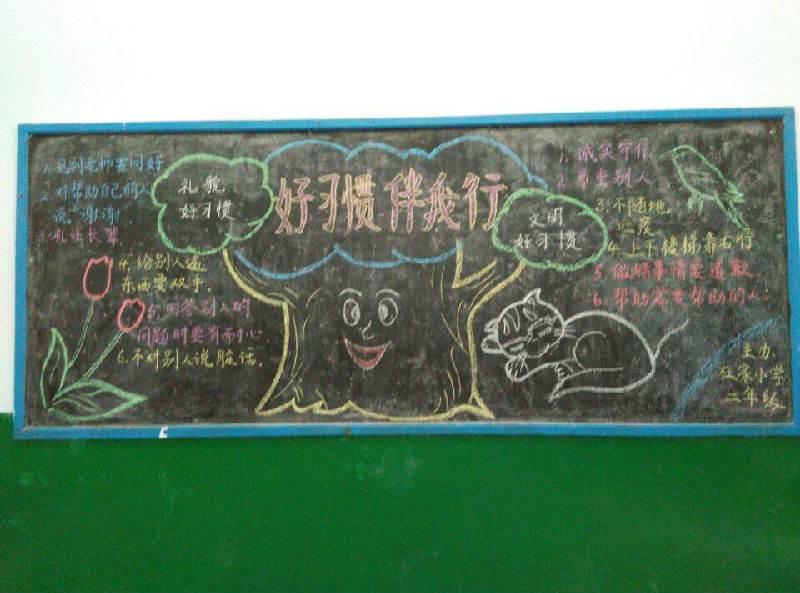 好习惯伴我行
礼貌
好习惯
1. 见到老师要问好
2. 对帮助自己的人
说“谢谢”
3. 礼让长辈
4. 给别人递
东西要双手.
5. 回答别人的
问题时要有耐心.
6. 不对别人说脏话.
文明
好习惯
1. 诚实守信
2. 尊重别人
3 不随地
吐痰
4. 上下楼梯靠右行
5. 做错事情要道歉.
6. 帮助需要帮助的人.
主办
小学
二年级